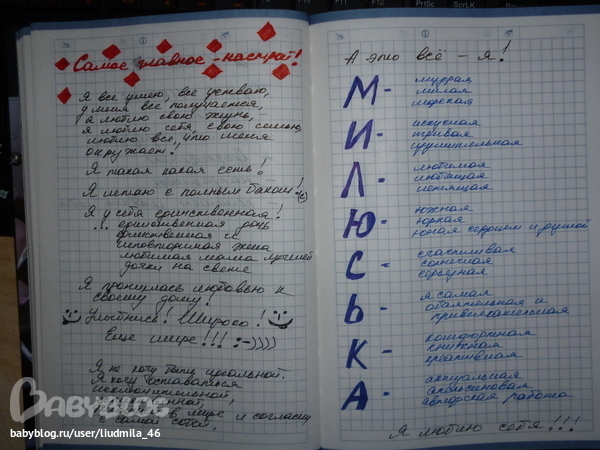 Самое главное - настрой!
Я всё умею, всё успеваю,
у меня всё получается,
я люблю свою жизнь,
я люблю себя, свою семью,
люблю всё, что меня
окружает!
Я такая какая есть!
Я летаю с полным баком! (с)
Я у себя единственная!
... единственная дочь
единственная и
неповторимая жена
любимая мама лучшей
дочки на свете
Я прониклась любовью к
своему дому!
Улыбнись! Широко!
Ещё шире!!! :-))))
Я не хочу быть идеальной.
Я хочу оставаться
в мире и согласии
с самой собой.
А это всё - я!
М - мудрая
милая
морская
И - искусная
игривая
изумительная
Л - любимая
любящая
летящая
Ю - южная
юркая
юная сердцем и душой
С - счастливая
солнечная
серьёзная
Ь - я самая
обаятельная и
привлекательная
К - комфортная
книжная
креативная
А - актуальная
апельсиновая
авторская работа
Я люблю себя!!!
BABYBLOG
babyblog.ru/user/liudmila_46